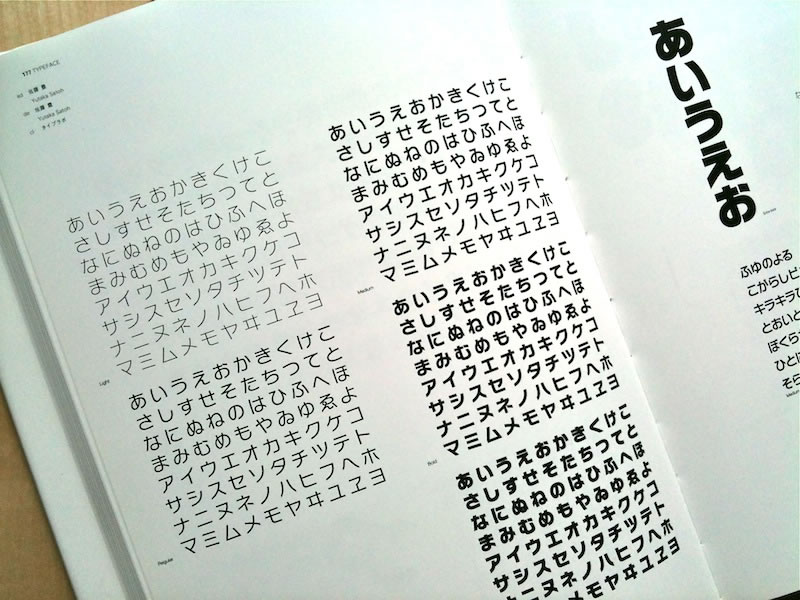 177 TYPEFACE
ad 佐藤 豊
Yutaka Satoh
de 佐藤 豊
Yutaka Satoh
cl タイプラボ
あいうえおかきくけこ
さしすせそたちつてと
なにぬねのはひふへほ
まみむめもやゐゆゑよ
アイウエオカキクケコ
サシスセソタチツテト
ナニヌネノハヒフヘホ
マミムメモヤヰユヱヨ
Light
あいうえおかきくけこ
さしすせそたちつてと
なにぬねのはひふへほ
まみむめもやゐゆゑよ
アイウエオカキクケコ
サシスセソタチツテト
ナニヌネノハヒフヘホ
マミムメモヤヰユヱヨ
Regular
あいうえおかきくけこ
さしすせそたちつてと
なにぬねのはひふへほ
まみむめもやゐゆゑよ
アイウエオカキクケコ
サシスセソタチツテト
ナニヌネノハヒフヘホ
マミムメモヤヰユヱヨ
Medium
あいうえおかきくけこ
さしすせそたちつてと
なにぬねのはひふへほ
まみむめもやゐゆゑよ
アイウエオカキクケコ
サシスセソタチツテト
ナニヌネノハヒフヘホ
マミムメモヤヰユヱヨ
Bold
あいうえおかきくけこ
さしすせそたちつてと
なにぬねのはひふへほ
まみむめもやゐゆゑよ
アイウエオカキクケコ
サシスセソタチツテト
ナニヌネノハヒフヘホ
マミムメモヤヰユヱヨ
あいうえお
ふゆのよる
こがらしピ
キラキラひ
とおいと
ぼくら
ひとに
そら
Medium